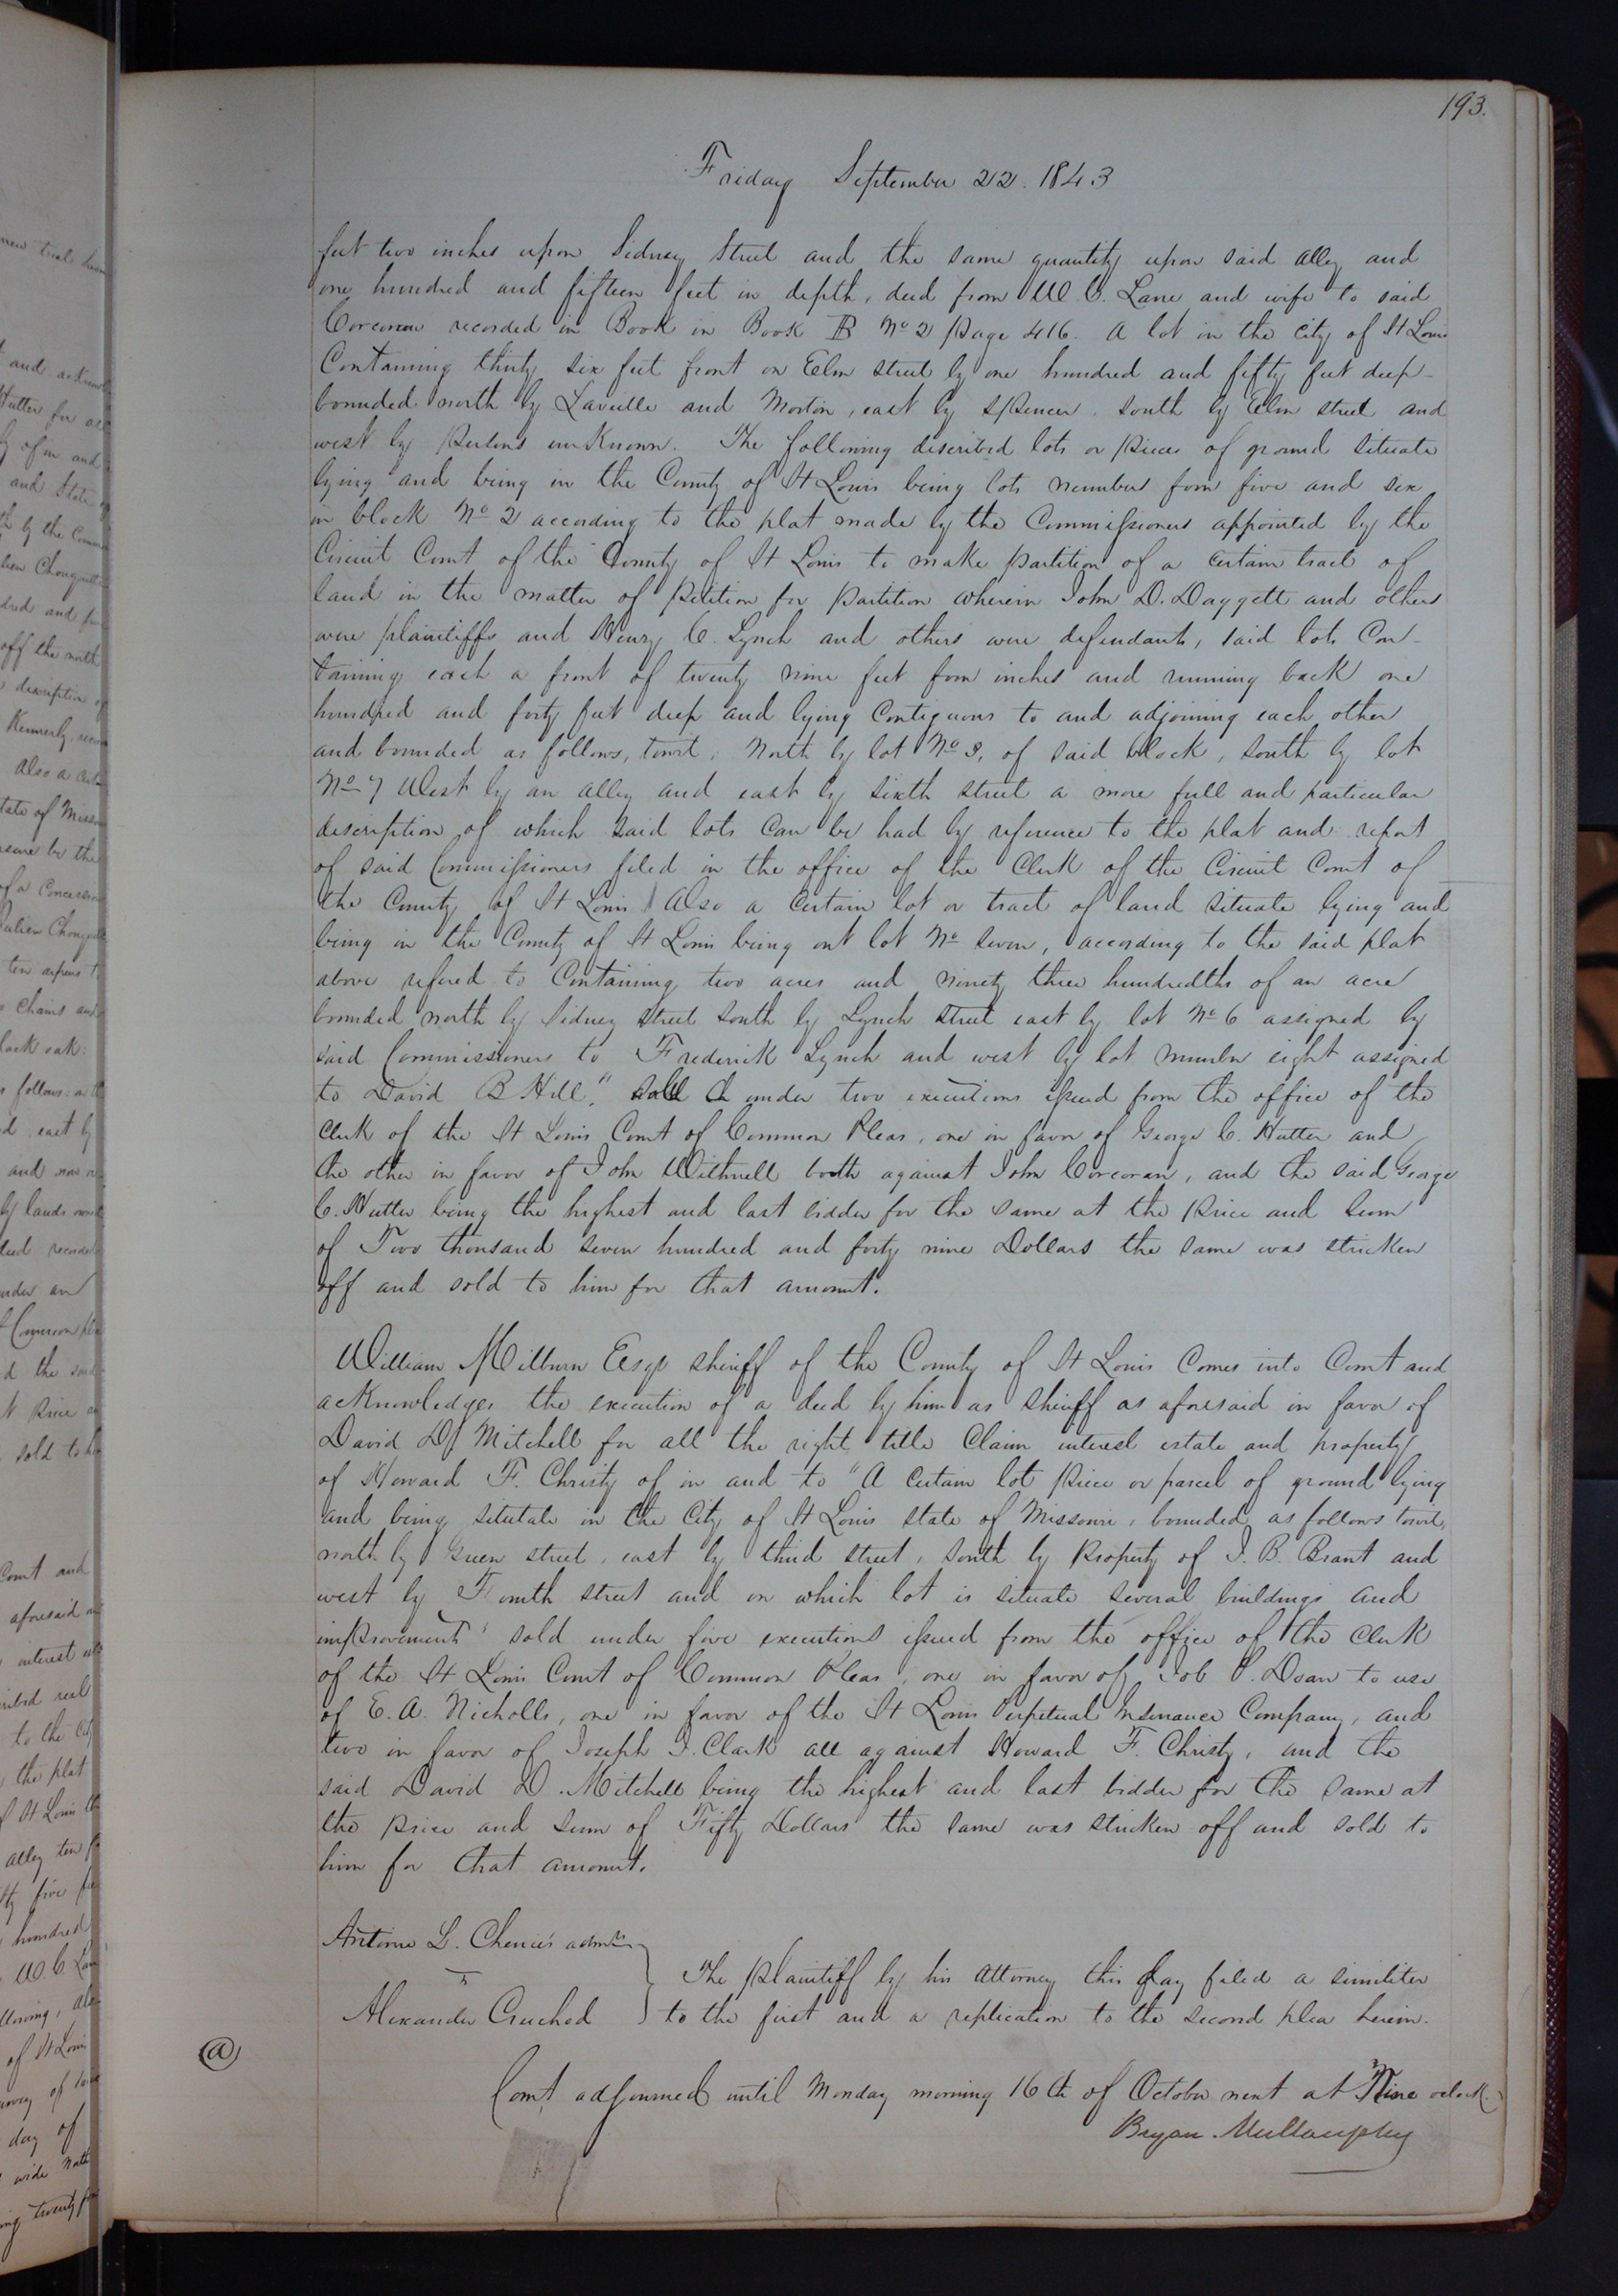 193.
Friday September 22. 1843
feet two inches upon Sidney Street and the same quantity upon said alley and
one hundred and fifteen feet in depth, deed from W. C. Lane and wife to said
Corcoran recorded in Book in Book B No 2 Page 416. A lot in the city of St Louis
Containing thirty six feet front on Elm street by one hundred and fifty feet deep
bounded north by Laveille and Morton, east by Spencer. South by Elm street and
west by Persons unknown. The following discribed lots or pieces of ground situate
lying and being in the County of St Louis being lots number four five and six
in block No 2 according to the plat made by the Commissioners appointed by the
Circuit Court of the County of St Louis to make partition of a certain tract of
land in the matter of petition for partition wherein John D. Daggett and others
were plaintiffs and Henry C. Lynch and others were defendants, said lots Con-
taining each a front of twenty nine feet four inches and running back one
hundred and forty feet deep and lying Contiguous to and adjoining each other
and bounded as follows, towit, North by lot No 3, of said block, south by lot
No 7 West by an alley and east by sixth street a more full and particular
description of which said lots can be had by reference to the plat and report
of said Commissioners filed in the office of the Clerk of the Circuit Court of
the County of St Louis Also a certain lot or tract of land situate lying and
being in the County of St Louis being out lot No seven, according to the said plat
above refered to Containing two acres and ninety three hundredths of an acre
bounded north by Sidney street south by Lynch street east by lot No 6 assigned by
said Commissioners to Frederick Lynch and west by lot number eight assigned
to David B Hill." Sold under two executions issued from the office of the
Clerk of the St Louis Court of Common Pleas, one in favor of George C. Hutter and
the other in favor of John Withnell both against John Corcoran, and the said George
C. Hutter being the highest and last bidder for the same at the Price and Sum
of Two thousand seven hundred and forty nine Dollars the same was stricken
off and sold to him for that amount.
William Milburn Esqr sheriff of the County of St Louis Comes into Court and
acknowledges the execution of a deed by him as sheriff as aforesaid in favor of
David D Mitchell for all the right title Claim interest estate and property
of Howard F. Christy of in and to "A certain lot piece or parcel of ground lying
and being situtate in the City of St Louis state of Missouri, bounded as follows towit,
north by Green street, east by third street, South by Property of J. B. Brant and
west by Fourth street and on which lot is situate several buildings and
improvements" sold under five executions issued from the office of the Clerk
of the St Louis Court of Common Pleas, one in favor of Job P. Doan to use
of E. A. Nicholls, one in favor of the St Louis Perpetual Insurance Company, and
two in favor of Joseph J. Clark all against Howard F. Christy, and the
said David D. Mitchell being the highest and last bidder for the same at
the price and sum of Fifty Dollars the same was stricken off and sold to
him for that amount.
Antoine L. Chenie's admr
vs
Alexander Cruchod
The Plaintiff by his Attorney this day filed a similiter
to the first and a replication to the second plea herein.
Court adjourned until Monday morning 16th of October next at Nine oclock.
Bryan Mullanphy